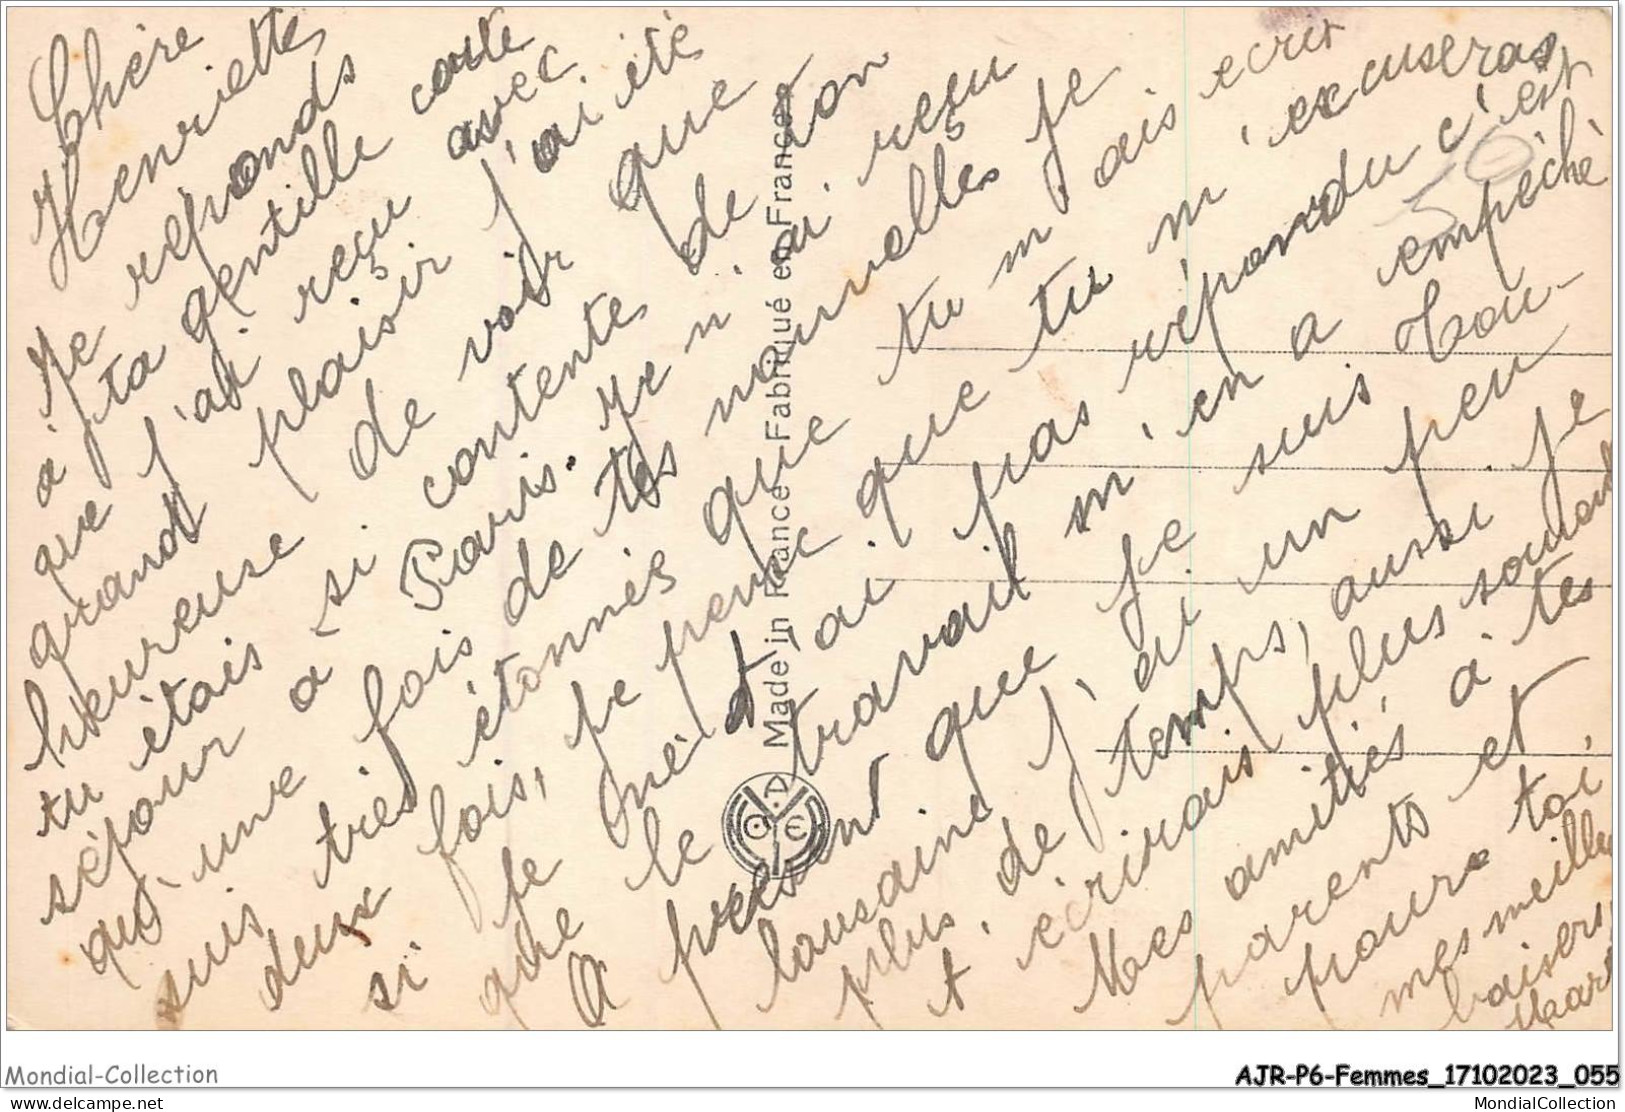 Chère
Henriette
Je réponds
à ta gentille carte
que j'ai reçu avec
grand plaisir j'ai été
heureuse de voir que
tu étais si contente de ton
séjour à Paris. Je n'ai reçu
qu'une fois de tes nouvelles je
suis très étonnés que tu m'ais ecrit
deux fois, je pense que tu m'excuseras
si je né t'ai pas répondu c'est
que le travail m'en a empéché
A present que je suis Tou-
lousaine j'ai un peu
plus de temps, aussi je
t'écrirais plus souvent
Mes amitiés à tes
parents et
pour toi,
mes meilleu
baisers,
Made in France Fabriqué en France
D
O E
50
Mondial-Collection
AJR-P6-Femmes_17102023_055
delcampe.net
MondialCollection